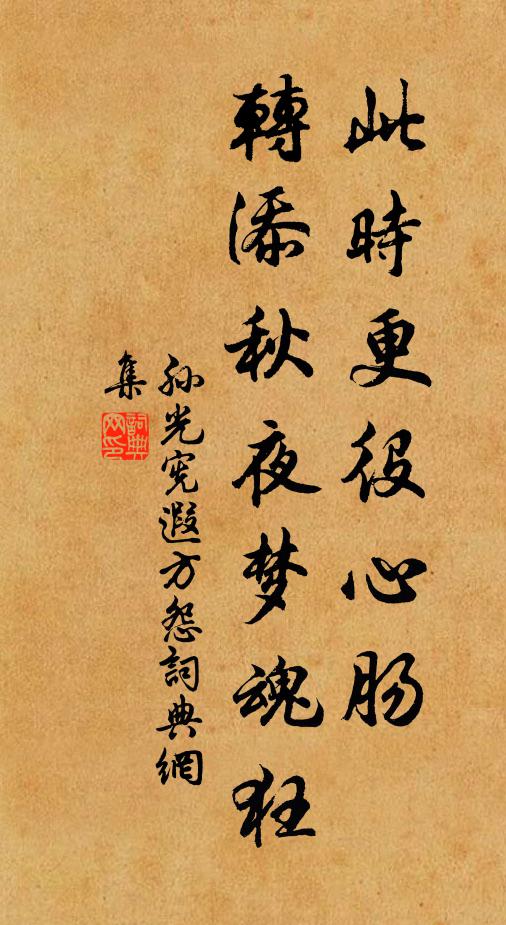 此時更役心肠
轉添秋夜梦魂狂
孙光宪遐方怨詞典網
集
詞典网印